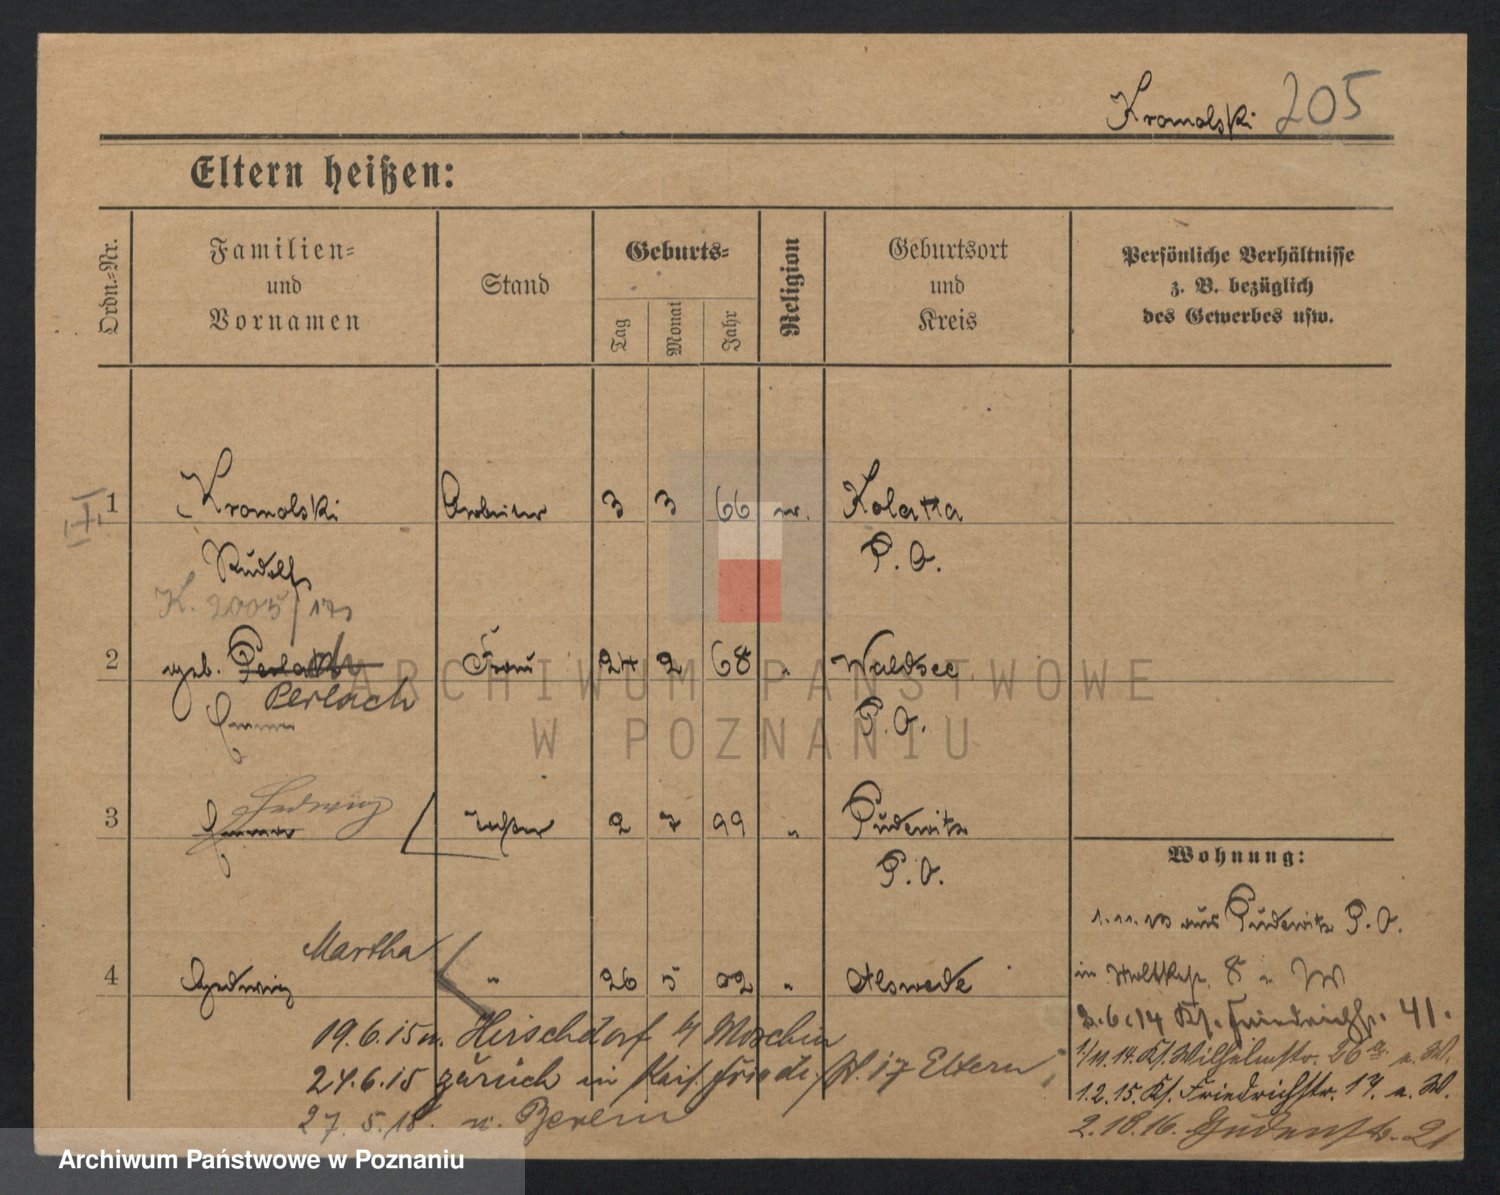 Kromolski 205
Eltern heißen:
Ordn.-Nr.
Familien-
und
Vornamen
Stand
Geburts-
Tag
Monat
Jahr
Religion
Geburtsort
und
Kreis
Persönliche Verhältnisse
z. B. bezüglich
des Gewerbes usw.
1 Kromolski Arbeiter 3 3 66 Kolatta
Rudolf P. O.
K. 2005/
2 geb. Frau 24 2 68 " Waldsee
Perlach P. O.
Hedwig
3 Tochter 2 7 99 " Pudewitz
P. O.
Wohnung:
1. 11. 13 aus Pudewitz P. O.
Martha
4 Hedwig " 26 5 02 " Alswede
in Moltkestr. 8
2.6.14 Friedrichstr. 41.
19.6.15 n. Hirschdorf b/ Moschin
1/11.14. Wilhelmstr. 26 a. W.
24.6.15 zurück in Kais. Friedr. 17 Eltern
1.2.15. Friedrichstr. 17. a. W.
27.5.18. n. Berlin
2.10.16. 21
ARCHIWUM PAŃSTWOWE
W POZNANIU
Archiwum Państwowe w Poznaniu